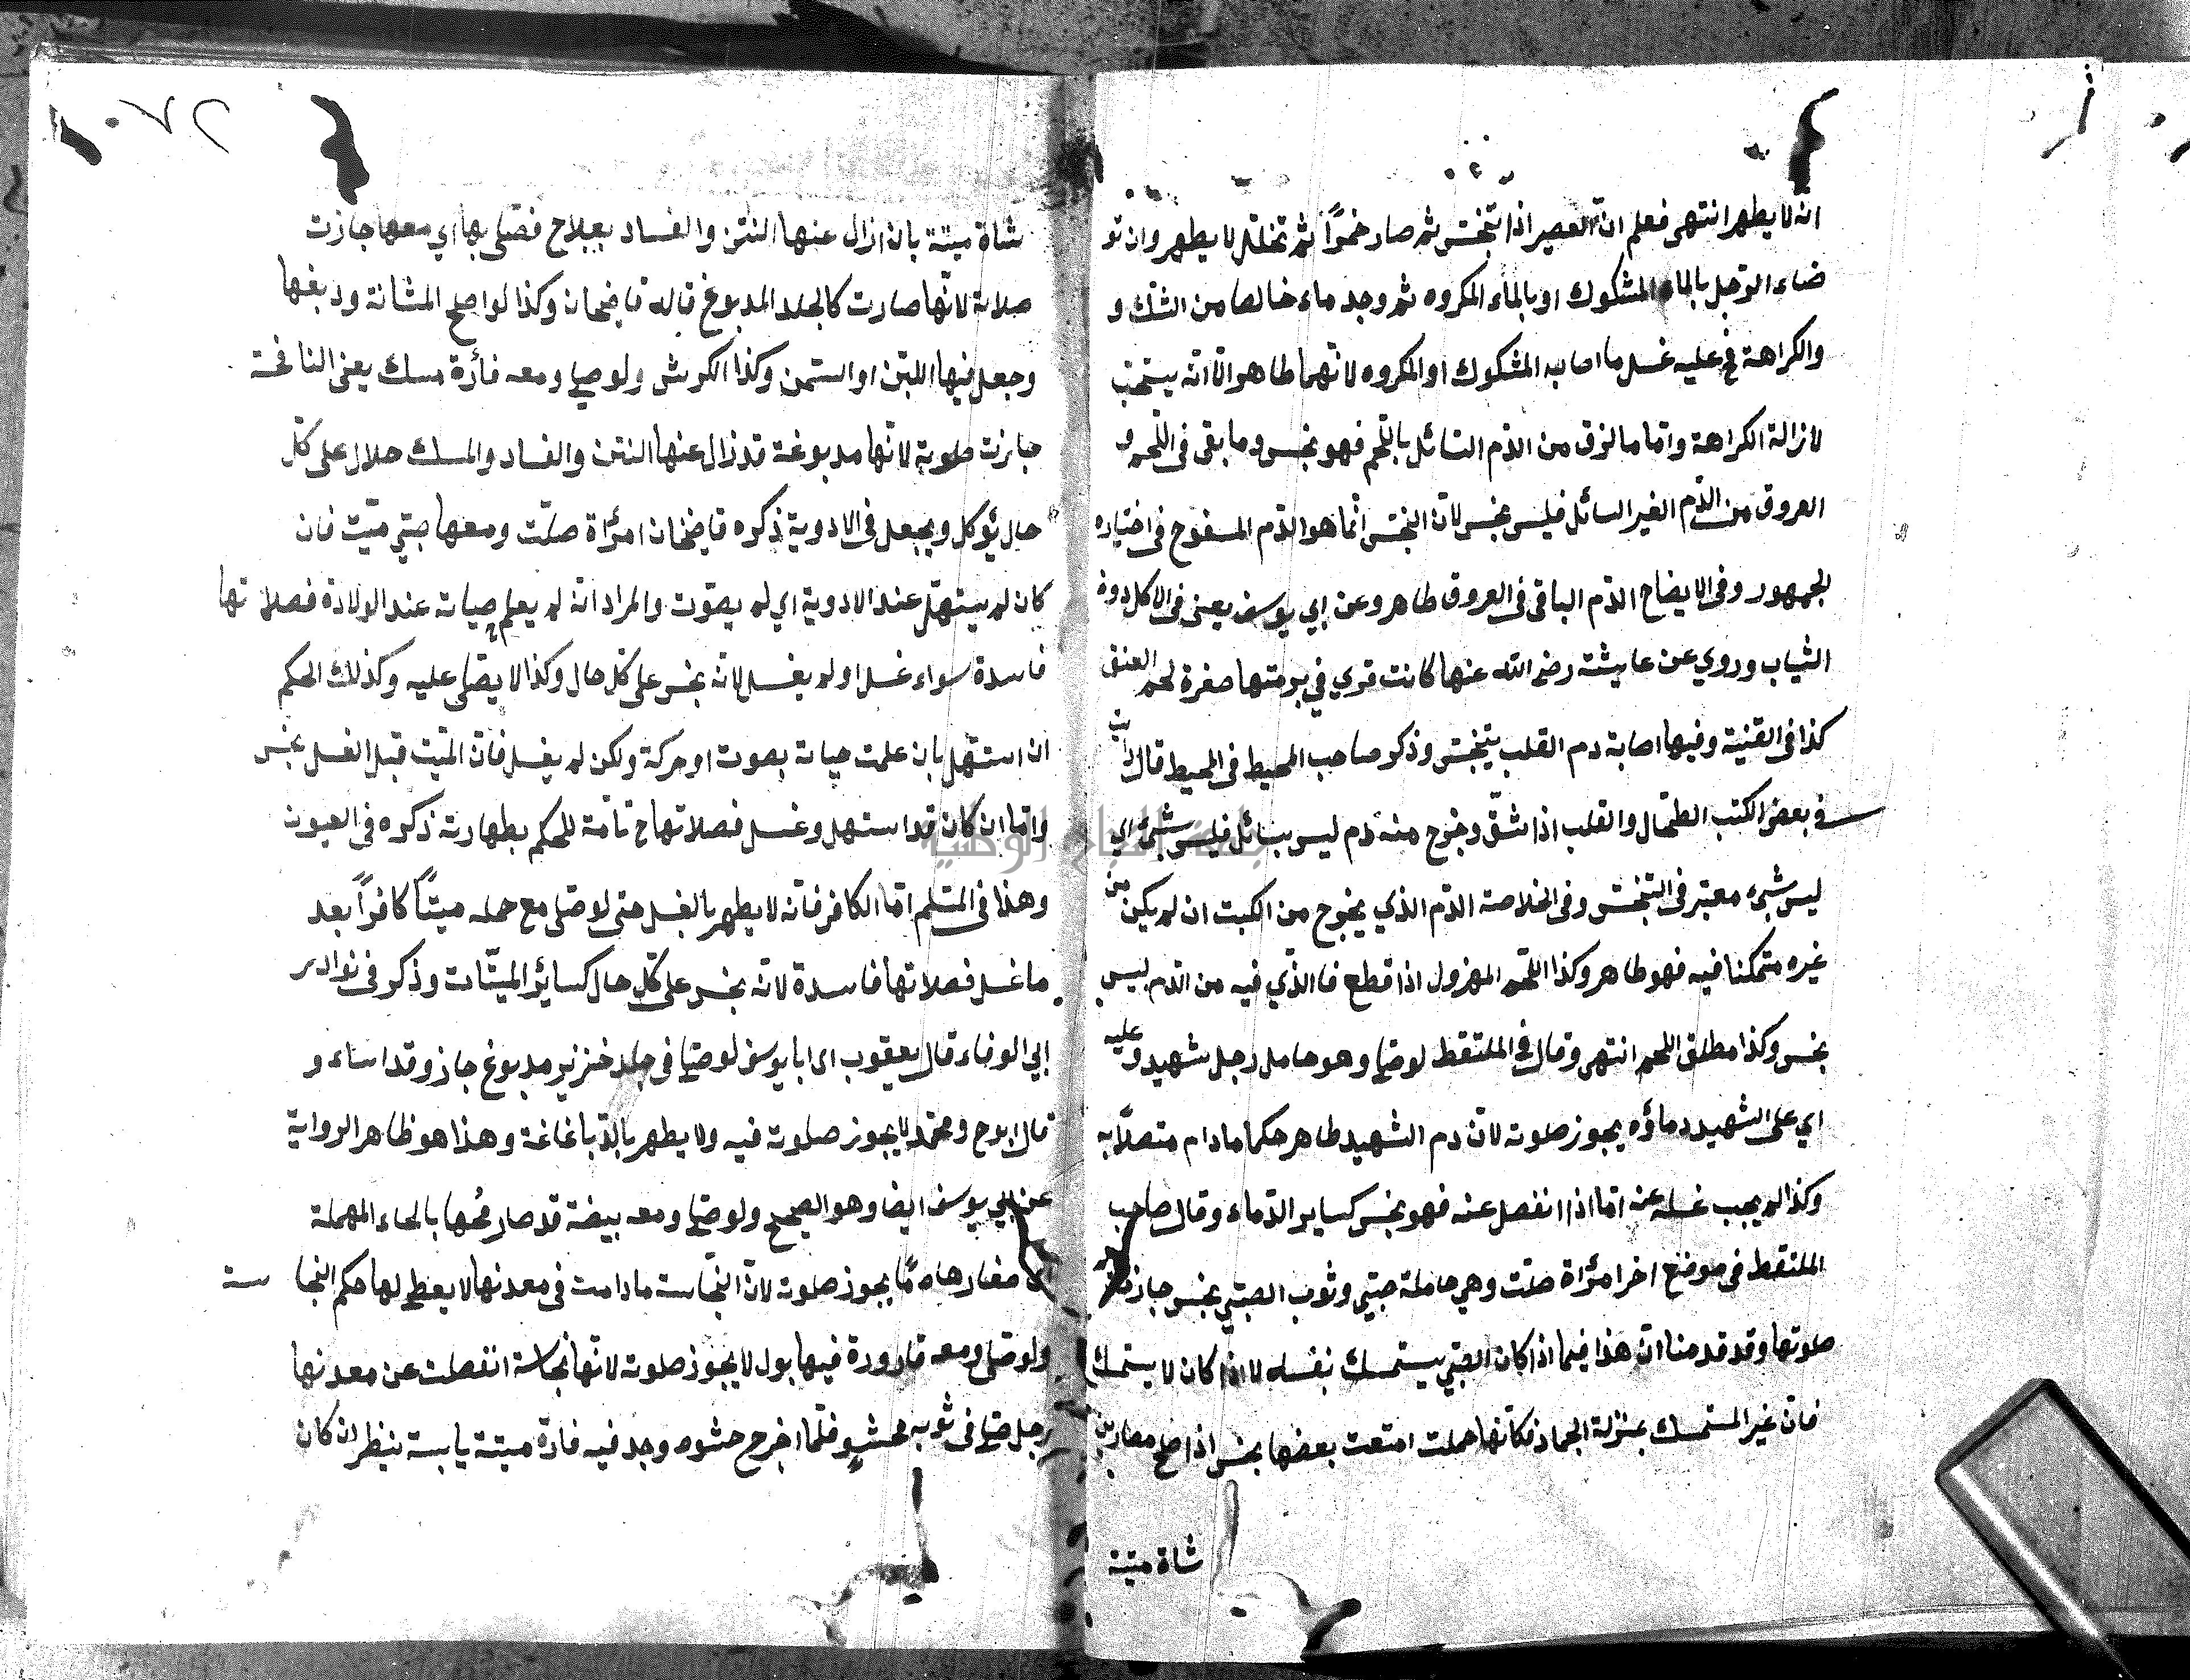 انه لا يطهر انتهى فعلم ان العصير اذا تنجّس ثم صار خمراً ثم تخلل لا يطهر وان تو
ضاء الرّجل بالماء المشكوك او بالماء المكروه ثم وجد ماء خالصا من الشك و
والكراهة فح عليه غسل ما اصابه المشكوك او المكروه لانّهما طاهر الّا انّه يستحبّ
لازالة الكراهة وامّا ما لزق من الدّم السّائل باللّحم فهو نجس وما بقى فى اللّحم و
العروق من الدّم الغير السائل فليس بنجس لانّ النجس انّما هو الدّم المسفوح فى اختياره
الجمهور وفى الايضاح الدّم الباقى فى العروق طاهر وعن ابي يوسف يعفى فى الاكل دون
الثياب وروي عن عايشة رضى الله عنها كانت تري في برمتها صفرة لحم العنق
كذا فى القنية وفيها اصابة دم القلب يتنجّس وذكر صاحب المحيط فى المحيط قال رايت
فى بعض الكتب الطّحال والقلب اذا شقّ وخرج منه دم ليس بسائل فليس بشئ اي
ليس بشيء معتبر فى التنجّس وفى الخلاصة الدّم الذي يخرج من الكبت ان لم يكن من
غيره متمكنا فيه فهو طاهر وكذا اللّحم المهزول اذا قطع فالذّي فيه من الدّم ليس
بنجس وكذا مطلق اللحم انتهى وقال في الملتقط لو صلّى وهو حامل رجل شهيد وعليه
اي على الشهيد دماؤه يجوز صلوته لانّ دم الشهيد طاهر حكما مادام متصلاً به
وكذا لم يجب غسله عنه امّا اذا انفصل عنه فهو نجس كساير الدّماء وقال صاحب
الملتقط فى موضع اخر امرُاة صلّت وهي حاملة صبّي وثوب الصبّي نجس جازت
صلوتها وقد قدمنا انّ هذا فيما اذا كان الصبّي يستمسك بنفسه لا اذا كان لا يستمسك
فانّ غير المستمسك بمنزلة الجماد فكانّها حملت امتعت بعضها نجس اذا اصلح مصارين
شاة ميتة
شاة ميتة بان ازال عنها النتن والفساد بعلاج فصلّى بها اي معها جازت
صلاته لانّها صارت كالجلد المدبوغ قاله قاضيخان وكذا لو اصلح المثانة ودبغها
وجعل فيها اللبن او السّمن وكذا الكرش ولو صلى ومعه فأرة مسك يعنى النافخة
جازت صلوته لانّها مدبوغة قد زال عنها النتن والفساد والمسك حلال على كلّ
حال يؤكل ويجعل فى الادوية ذكره قاضيخان امرُاة صلّت ومعها صبّي ميّت فان
كان لم يستهلّ عند الادوية اي لم يصوّت والمراد انّه لم يعلم حياته عند الولادة فصلاتها
فاسدة سواء غسل او لم يغسل لانّه نجس على كلّ حال وكذا لا يصلّى عليه وكذلك الحكم
ان استهلّ بان علمت حياته بصوت او حركة ولكن لم يغسل فانّ الميّت قبل الغسل نجس
وامّا ان كان قد استهل وغسل فصلاتها ح تامّة للحكم بطهارته ذكره فى العيون
وهذا فى المسّلم امّا الكافر فانه لا يطهر بالغسل حتى لو صلى مع حمله ميّتاً كافراً بعد
ما غسل فصلاتها فاسدة لانّه نجس على كلّ حال كسائر الميتّات وذكر فى نوادر
ابي الوفاء قال يعقوب اى ابا يوسف لو صلّى فى جلد خنزير مدبوغ جاز وقد اساء و
قال ابو ح ومحمّد لا يجوز صلوته فيه ولا يطهر بالدّباغاغة وهذا هو ظاهر الرواية
عن ابي يوسف ايضا وهو الصحيح ولو صلّى ومعه بيضة قد صار مُحّها بالحاء المهملة
اي صفارها دمًا يجوز صلوته لانّ النجّاسة مادامت فى معدنها لا يعطى لها حكم النجاسة
ولو صلّى ومعه قارورة فيها بول لا يجوز صلوته لانها نجاسة انفصلت عن معدنها
رجل صلّى فى ثوبه محشوٍ فلّما اخرج حشوه وجد فيه فارة ميتة يابسة ينظر ان كان